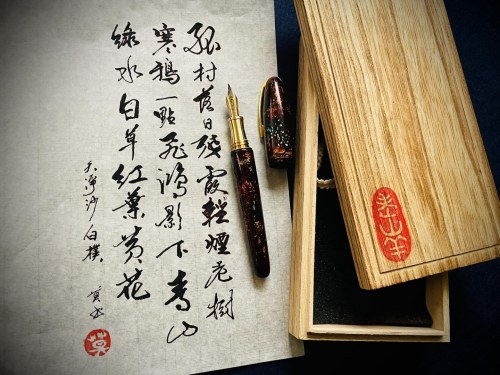 孤村落日殘霞輕煙老樹
寒鴉一點飛鴻影下青山
綠水白草紅葉黃花
天淨沙白樸